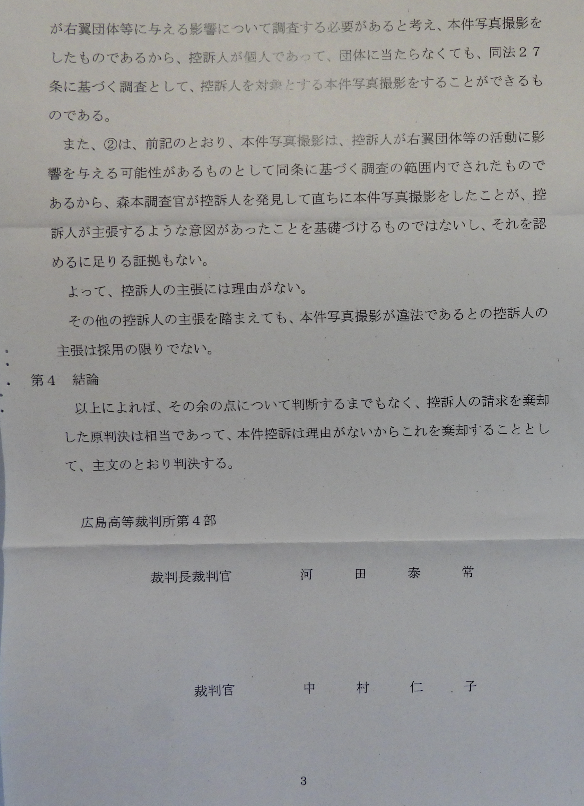 が右翼団体等に与える影響について調査する必要があると考え、本件写真撮影を
したものであるから、控訴人が個人であって、団体に当たらなくても、同法２７
条に基づく調査として、控訴人を対象とする本件写真撮影をすることができるも
のである。
また、②は、前記のとおり、本件写真撮影は、控訴人が右翼団体等の活動に影
響を与える可能性があるものとして同条に基づく調査の範囲内でされたもので
あるから、森本調査官が控訴人を発見して直ちに本件写真撮影をしたことが、控
訴人が主張するような意図があったことを基礎づけるものではないし、それを認
めるに足りる証拠もない。
よって、控訴人の主張には理由がない。
その他の控訴人の主張を踏まえても、本件写真撮影が違法であるとの控訴人の
主張は採用の限りでない。
第４　結論
以上によれば、その余の点について判断するまでもなく、控訴人の請求を棄却
した原判決は相当であって、本件控訴は理由がないからこれを棄却することとし
て、主文のとおり判決する。
広島高等裁判所第４部
裁判長裁判官　河　田　泰　常
裁判官　中　村　仁　子
3